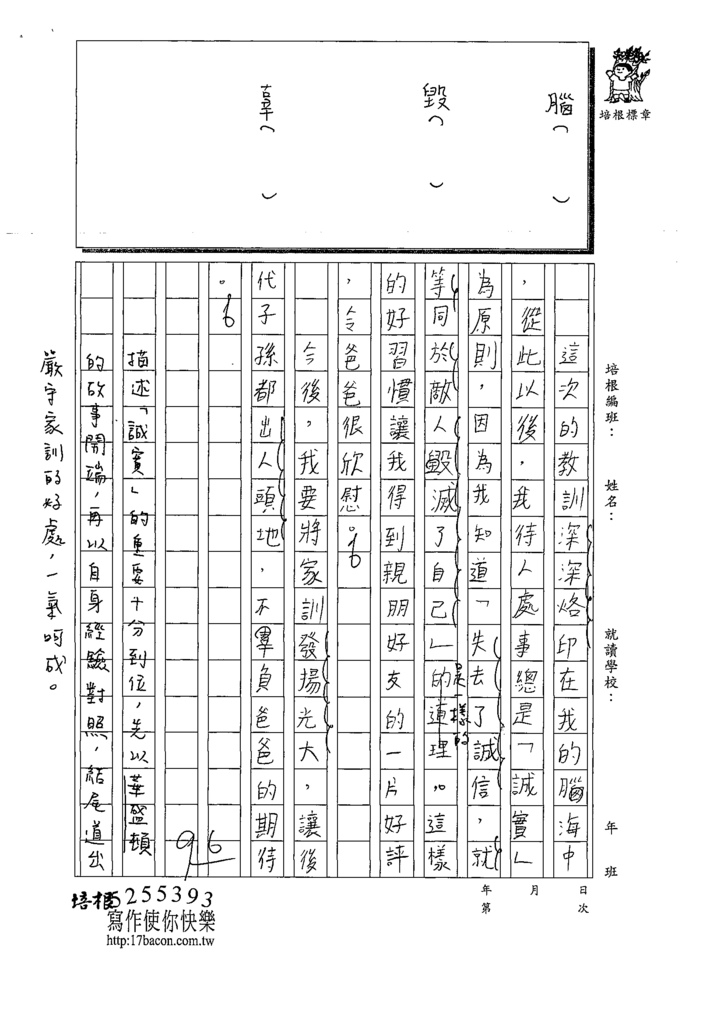 培根標章
腦（　　）
毀（　　）
辜（　　）
培根編班：　姓名：　就讀學校：　年　班
日次
月
年第
這次的教訓深深烙印在我的腦海中
，從此以後，我待人處事總是「誠實」
為原則，因為我知道「失去了誠信，就
等同於敵人毀滅了自己」的道理。這樣
是一樣的
的好習慣讓我得到親朋好友的一片好評
，令爸爸很欣慰。
今後，我要將家訓發揚光大，讓後
代子孫都出人頭地，不辜負爸爸的期待
。
96
描述「誠實」的重要十分到位，先以華盛頓
的故事開端，再以自身經驗對照，結尾道出
嚴守家訓的好處，一氣呵成。
培根255393
寫作使你快樂
http:17bacon.com.tw